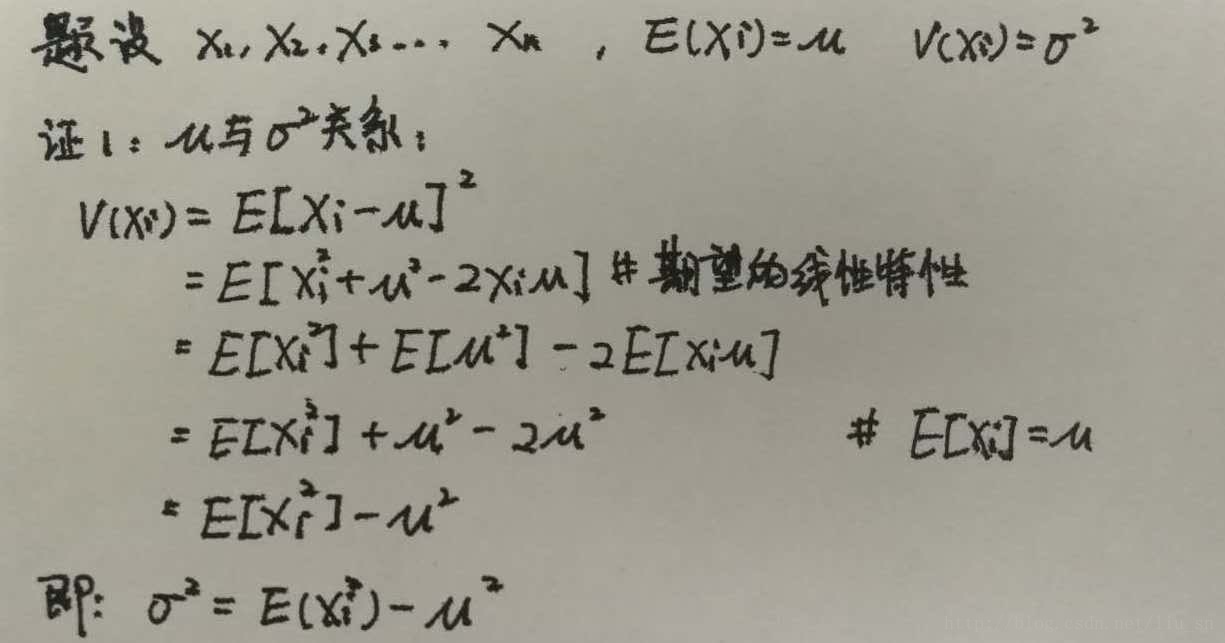 题设 X₁, X₂, X₃ ... Xn , E(Xi)=μ V(Xi)=σ²
证1: μ与σ²关系:
V(Xi) = E[Xi-μ]²
= E[Xi²+μ²-2Xiμ] # 期望的线性特性
= E[Xi²] + E[μ²] - 2E[Xiμ]
= E[Xi²] + μ² - 2μ² # E[Xi]=μ
= E[Xi²] - μ²
即: σ² = E(Xi²) - μ²